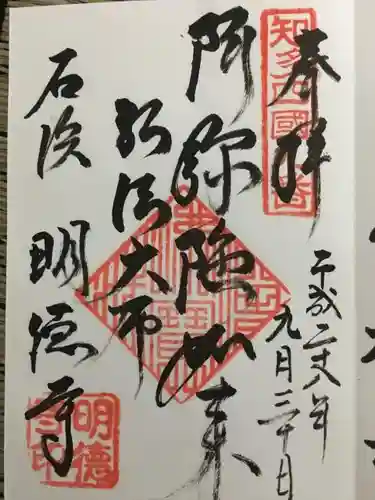 奉拝
知多四國
平成二十八年
九月三十日
阿弥陀如来
弘法大师
石浜 明徳寺
明徳寺印